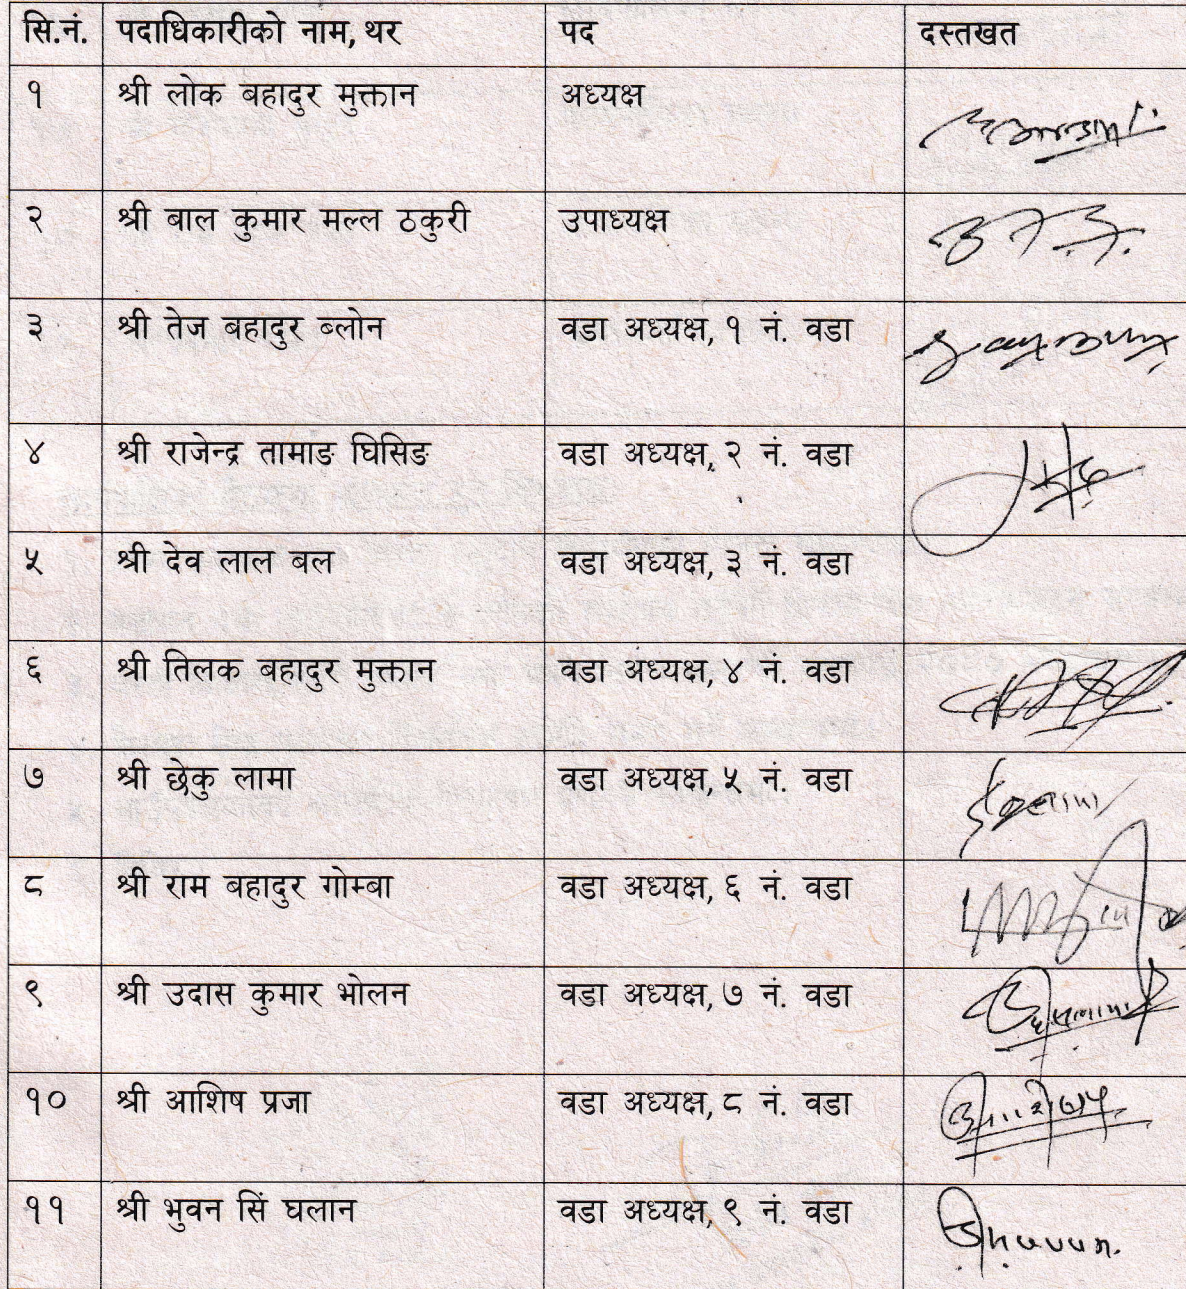 सि.नं. पदाधिकारीको नाम, थर पद दस्तखत
१ श्री लोक बहादुर मुक्तान अध्यक्ष
२ श्री बाल कुमार मल्ल ठकुरी उपाध्यक्ष
३ श्री तेज बहादुर ब्लोन वडा अध्यक्ष, १ नं. वडा
४ श्री राजेन्द्र तामाङ घिसिङ वडा अध्यक्ष, २ नं. वडा
५ श्री देव लाल बल वडा अध्यक्ष, ३ नं. वडा
६ श्री तिलक बहादुर मुक्तान वडा अध्यक्ष, ४ नं. वडा
७ श्री छेकु लामा वडा अध्यक्ष, ५ नं. वडा
८ श्री राम बहादुर गोम्बा वडा अध्यक्ष, ६ नं. वडा
९ श्री उदास कुमार भोलन वडा अध्यक्ष, ७ नं. वडा
१० श्री आशिष प्रजा वडा अध्यक्ष, ८ नं. वडा
११ श्री भुवन सिं घलान वडा अध्यक्ष, ९ नं. वडा